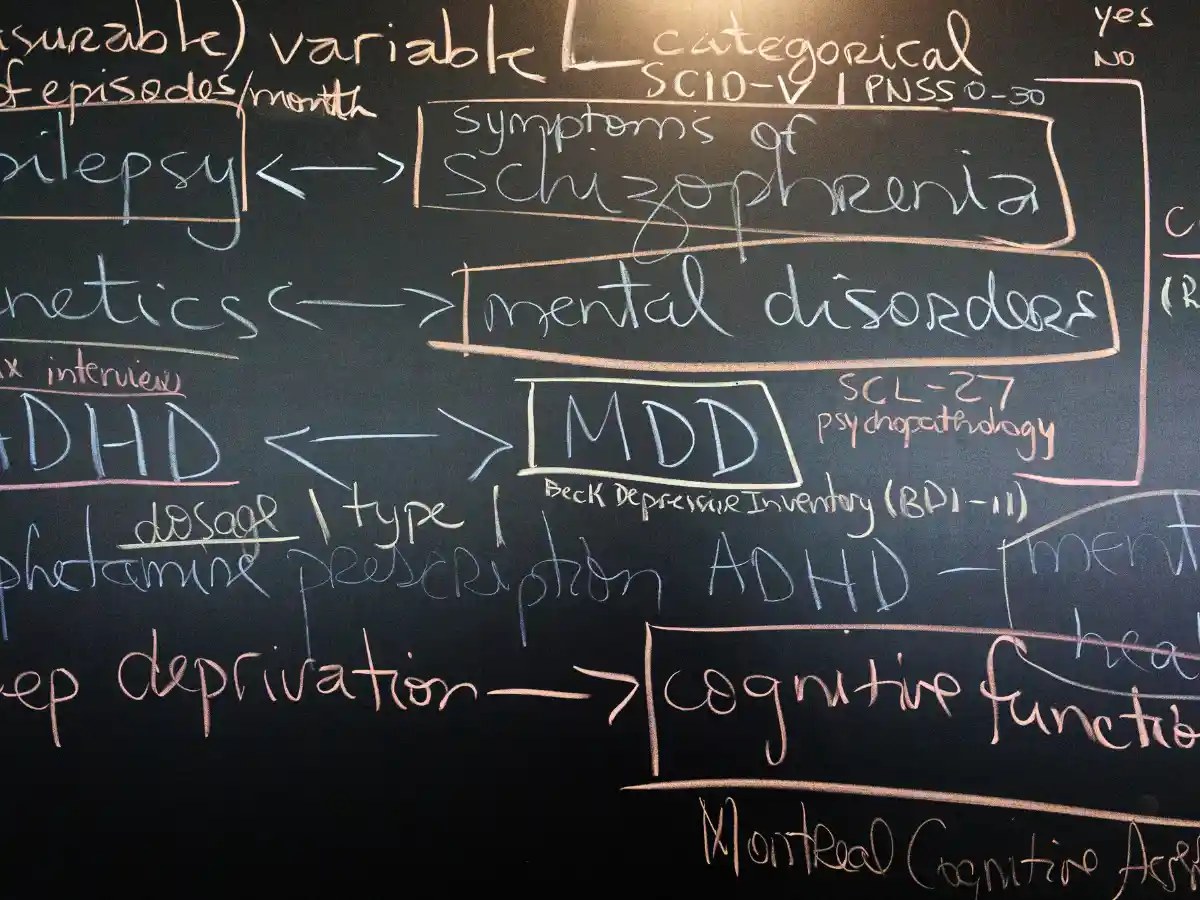 surable) variable categorical
yes
NO
of episodes/month
SCID-V | PNSS 0-30
pilepsy <—> symptoms of
schizophrenia
netics <—> mental disorders
x interview
SCL-27
psychopathology
ADHD <—> MDD
Beck Depressive Inventory (BDI-II)
dosage | type |
phetamine prescription ADHD — ment
hea
eep deprivation —> cognitive functio
Montreal Cognitive Ass